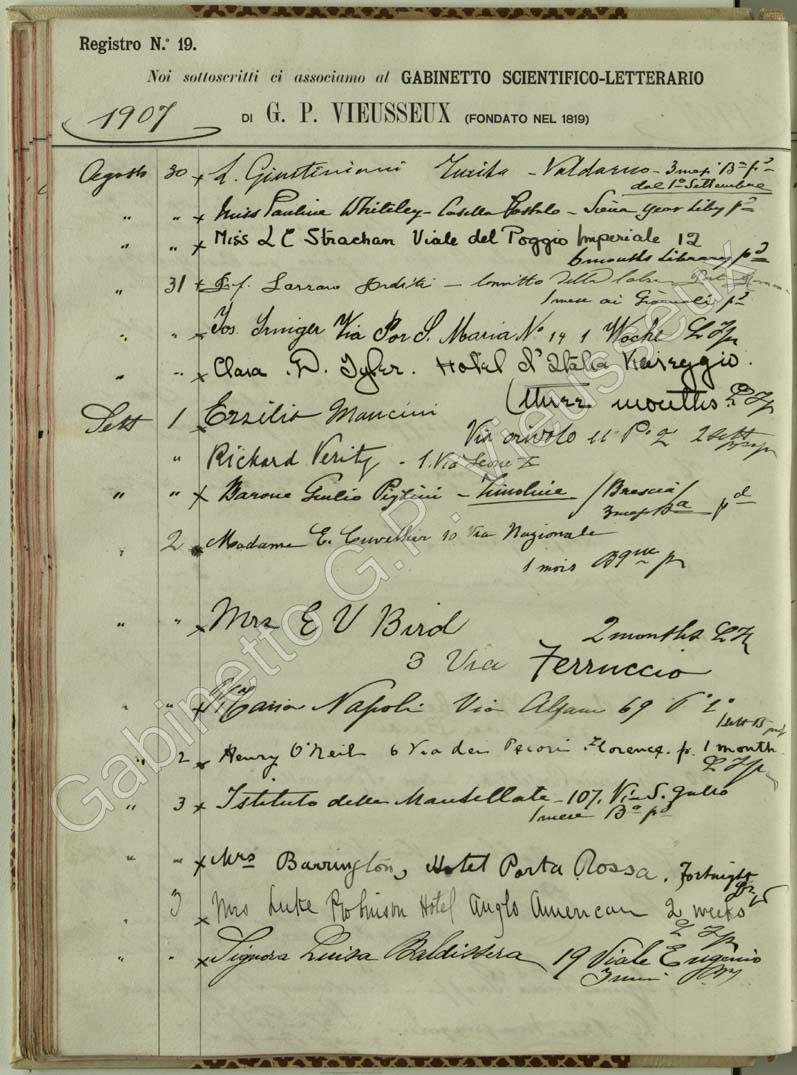 Registro N.° 19.
Noi sottoscritti ci associamo al GABINETTO SCIENTIFICO-LETTERARIO
1907
DI G. P. VIEUSSEUX (FONDATO NEL 1819)
Agosto 30 x L. Giustiniani - Valdarno - 3 mesi Bª pª
dal 1° Settembre
" " x Miss Pauline Whiteley - Casella Postale - Siena year
" " x Miss L C Strachan Viale del Poggio Imperiale 12
6 months Library pd
" 31 x Lazzaro - Convitto della
1 mese ai Giornali pº
" " x Jos. Irniger Via Por S. Maria Nº 14 1 Woche
" " x Clara D. Tyler. Hotel d'Italia Viareggio.
(three months.
Sett 1 x Ersilia Mancini
Via 11 Pº 2 2 sett
" Richard Verity - 1. Via Leone X
" " x Barone Giulio - Timoline /Brescia/
3 mesi Bª pd
" 2 x Madame E. Cuvellier 10 Via Nazionale
1 mois
" " x Mrs E V Bird 2 months
3 Via Ferruccio
" " x Maria Napoli Via Alfani 69 Pº 1º
1 sett
" 2 x Henry O'Neil 6 Via dei Pecori Florence. 1 month
" 3 x Istituto delle Mantellate - 107. Via S. Gallo
1 mese Bª pº
" " x Mrs Barrington, Hotel Porta Rossa. Fortnight
3 x Mrs Luke Robinson Hotel Anglo American 2 weeks
" " x Signora Luisa Baldissera 19 Viale Eugenio
Gabinetto G.P. Vieusseux